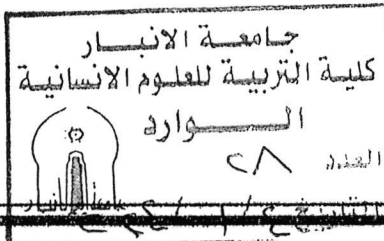 جامعة الانبار
كلية التربية للعلوم الانسانية
الوارد
العدد ٢٨
التاريخ